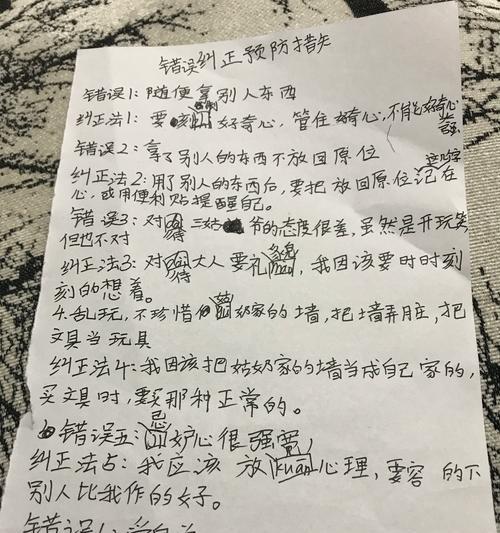 错误纠正预防措施
错误1:随便拿别人东西
纠正法1:要克制好奇心,管住好奇心,不能好奇心
强
错误2:拿了别人的东西不放回原位
纠正法2:用了别人的东西后,要把 放回原位记在
心,或用便利贴提醒自己。
错误3:对待三姑爷的态度很差,虽然是开玩笑
但也不对
纠正法3:对待大人要礼貌,我因该要时时刻
刻的想着。
4.乱玩,不珍惜 奶家的墙,把墙弄脏,把
文具当玩具
纠正法4:我因该把姑奶家的墙当成自己家的,
买文具时,要买那种正常的。
错误五:忌妒心很强
纠正法5:我应该放kuan心理,要容的下
别人比我作的好。